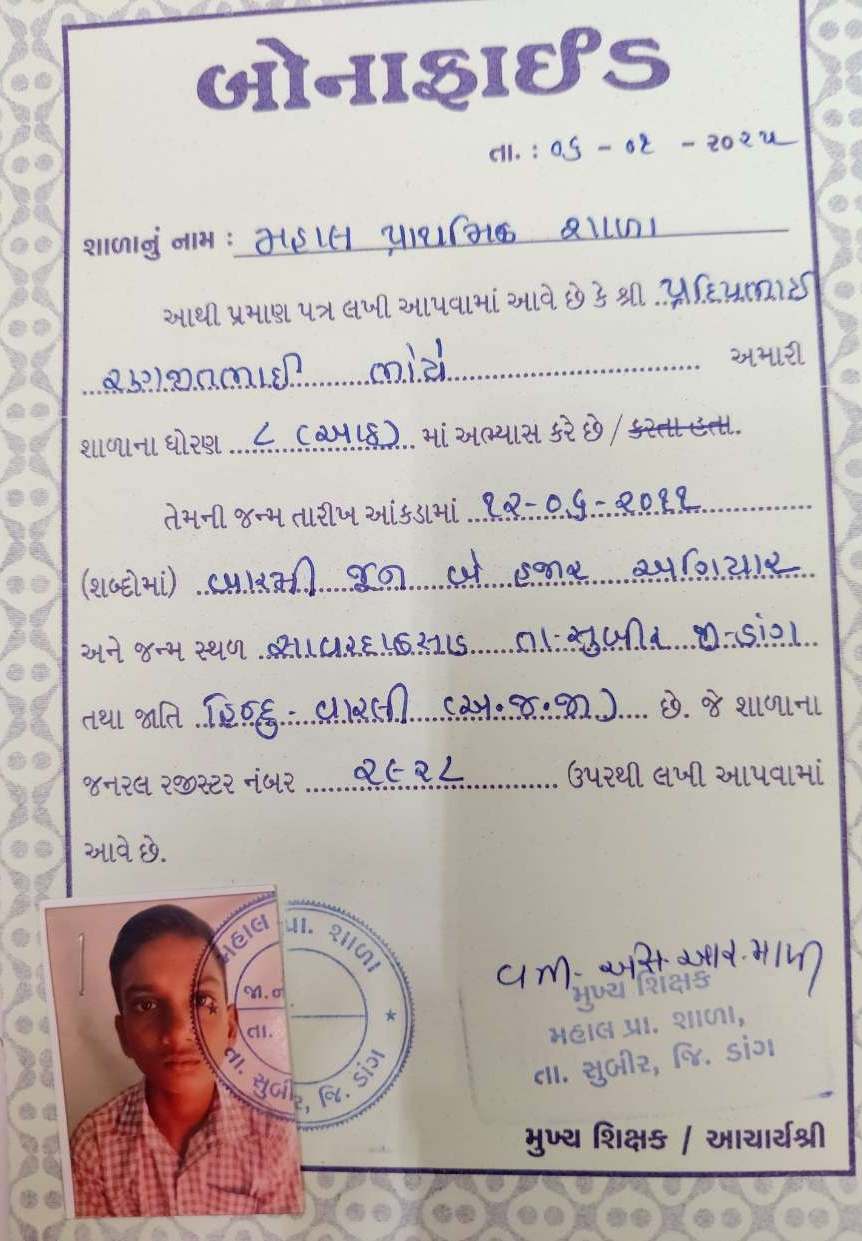 બોનાફાઈડ
તા. : ૦૬ - ૦૧ - ૨૦૨૫
શાળાનું નામ : મહાલ પ્રાથમિક શાળા
આથી પ્રમાણ પત્ર લખી આપવામાં આવે છે કે શ્રી પ્રદિપભાઈ
રણજીતભાઈ ભોયે અમારી
શાળાના ધોરણ ૮ (આઠ) માં અભ્યાસ કરે છે / કરતા હતા.
તેમની જન્મ તારીખ આંકડામાં ૧૨-૦૬-૨૦૧૧
(શબ્દોમાં) બારમી જૂન બે હજાર અગિયાર
અને જન્મ સ્થળ સાવરદાકસાડ તા-સુબીર જી-ડાંગ
તથા જાતિ હિન્દુ - વારલી (અ.જ.જા) છે. જે શાળાના
જનરલ રજીસ્ટર નંબર ૨૯૨૮ ઉપરથી લખી આપવામાં
આવે છે.
મહાલ પ્રા. શાળા
જા.નં
તા.
તા. સુબીર, જિ. ડાંગ
એસ.આર.માળી
મુખ્ય શિક્ષક
મહાલ પ્રા. શાળા,
તા. સુબીર, જિ. ડાંગ
મુખ્ય શિક્ષક / આચાર્યશ્રી